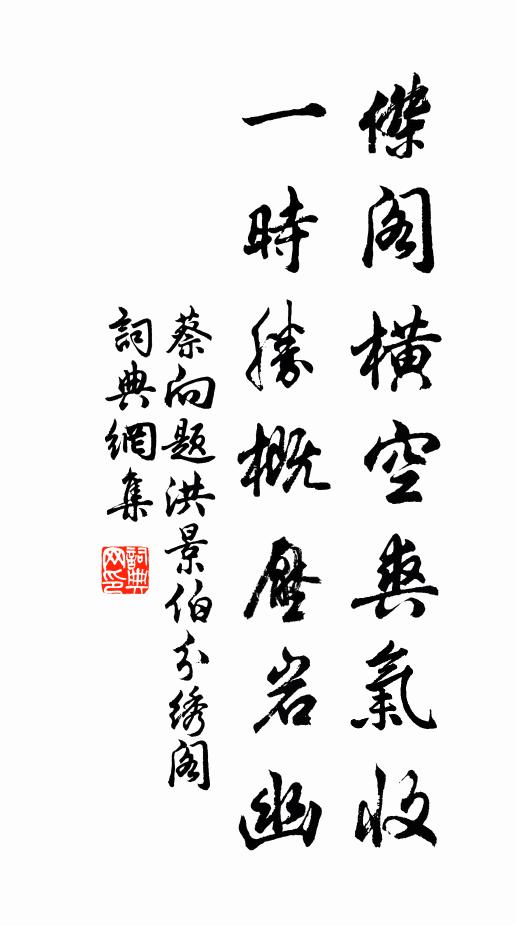 傑閣橫空爽氣收
一時勝概壓岩幽
蔡向題洪景伯分綉閣
詞典網集
詞典網印